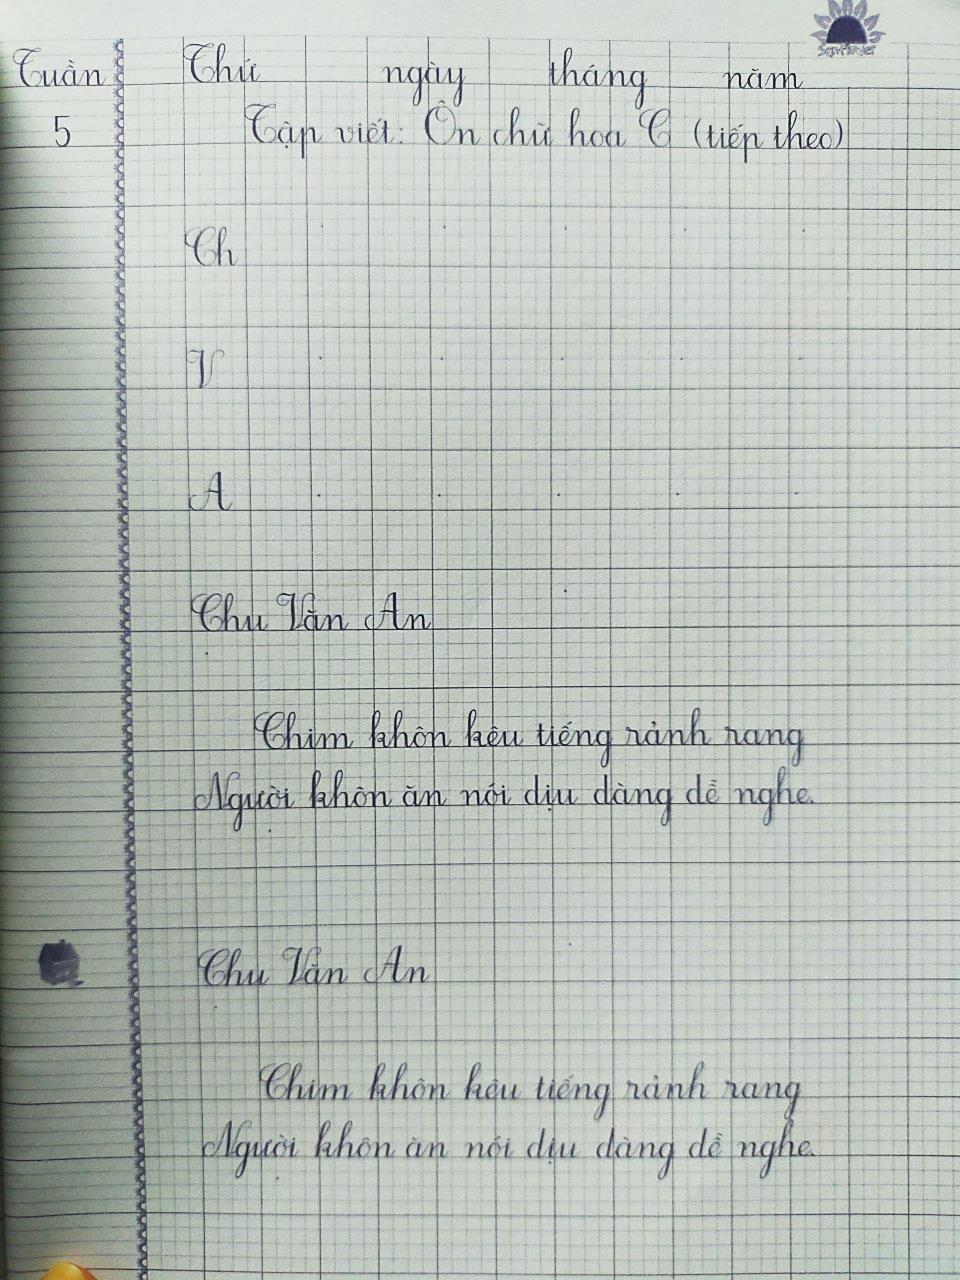 Tuần Thứ ngày tháng năm
5 Tập viết: Ôn chữ hoa C (tiếp theo)
Ch
V
A
Chu Văn An
Chim khôn kêu tiếng rảnh rang
Người khôn ăn nói dịu dàng dễ nghe.
Chu Văn An
Chim khôn kêu tiếng rảnh rang
Người khôn ăn nói dịu dàng dễ nghe.